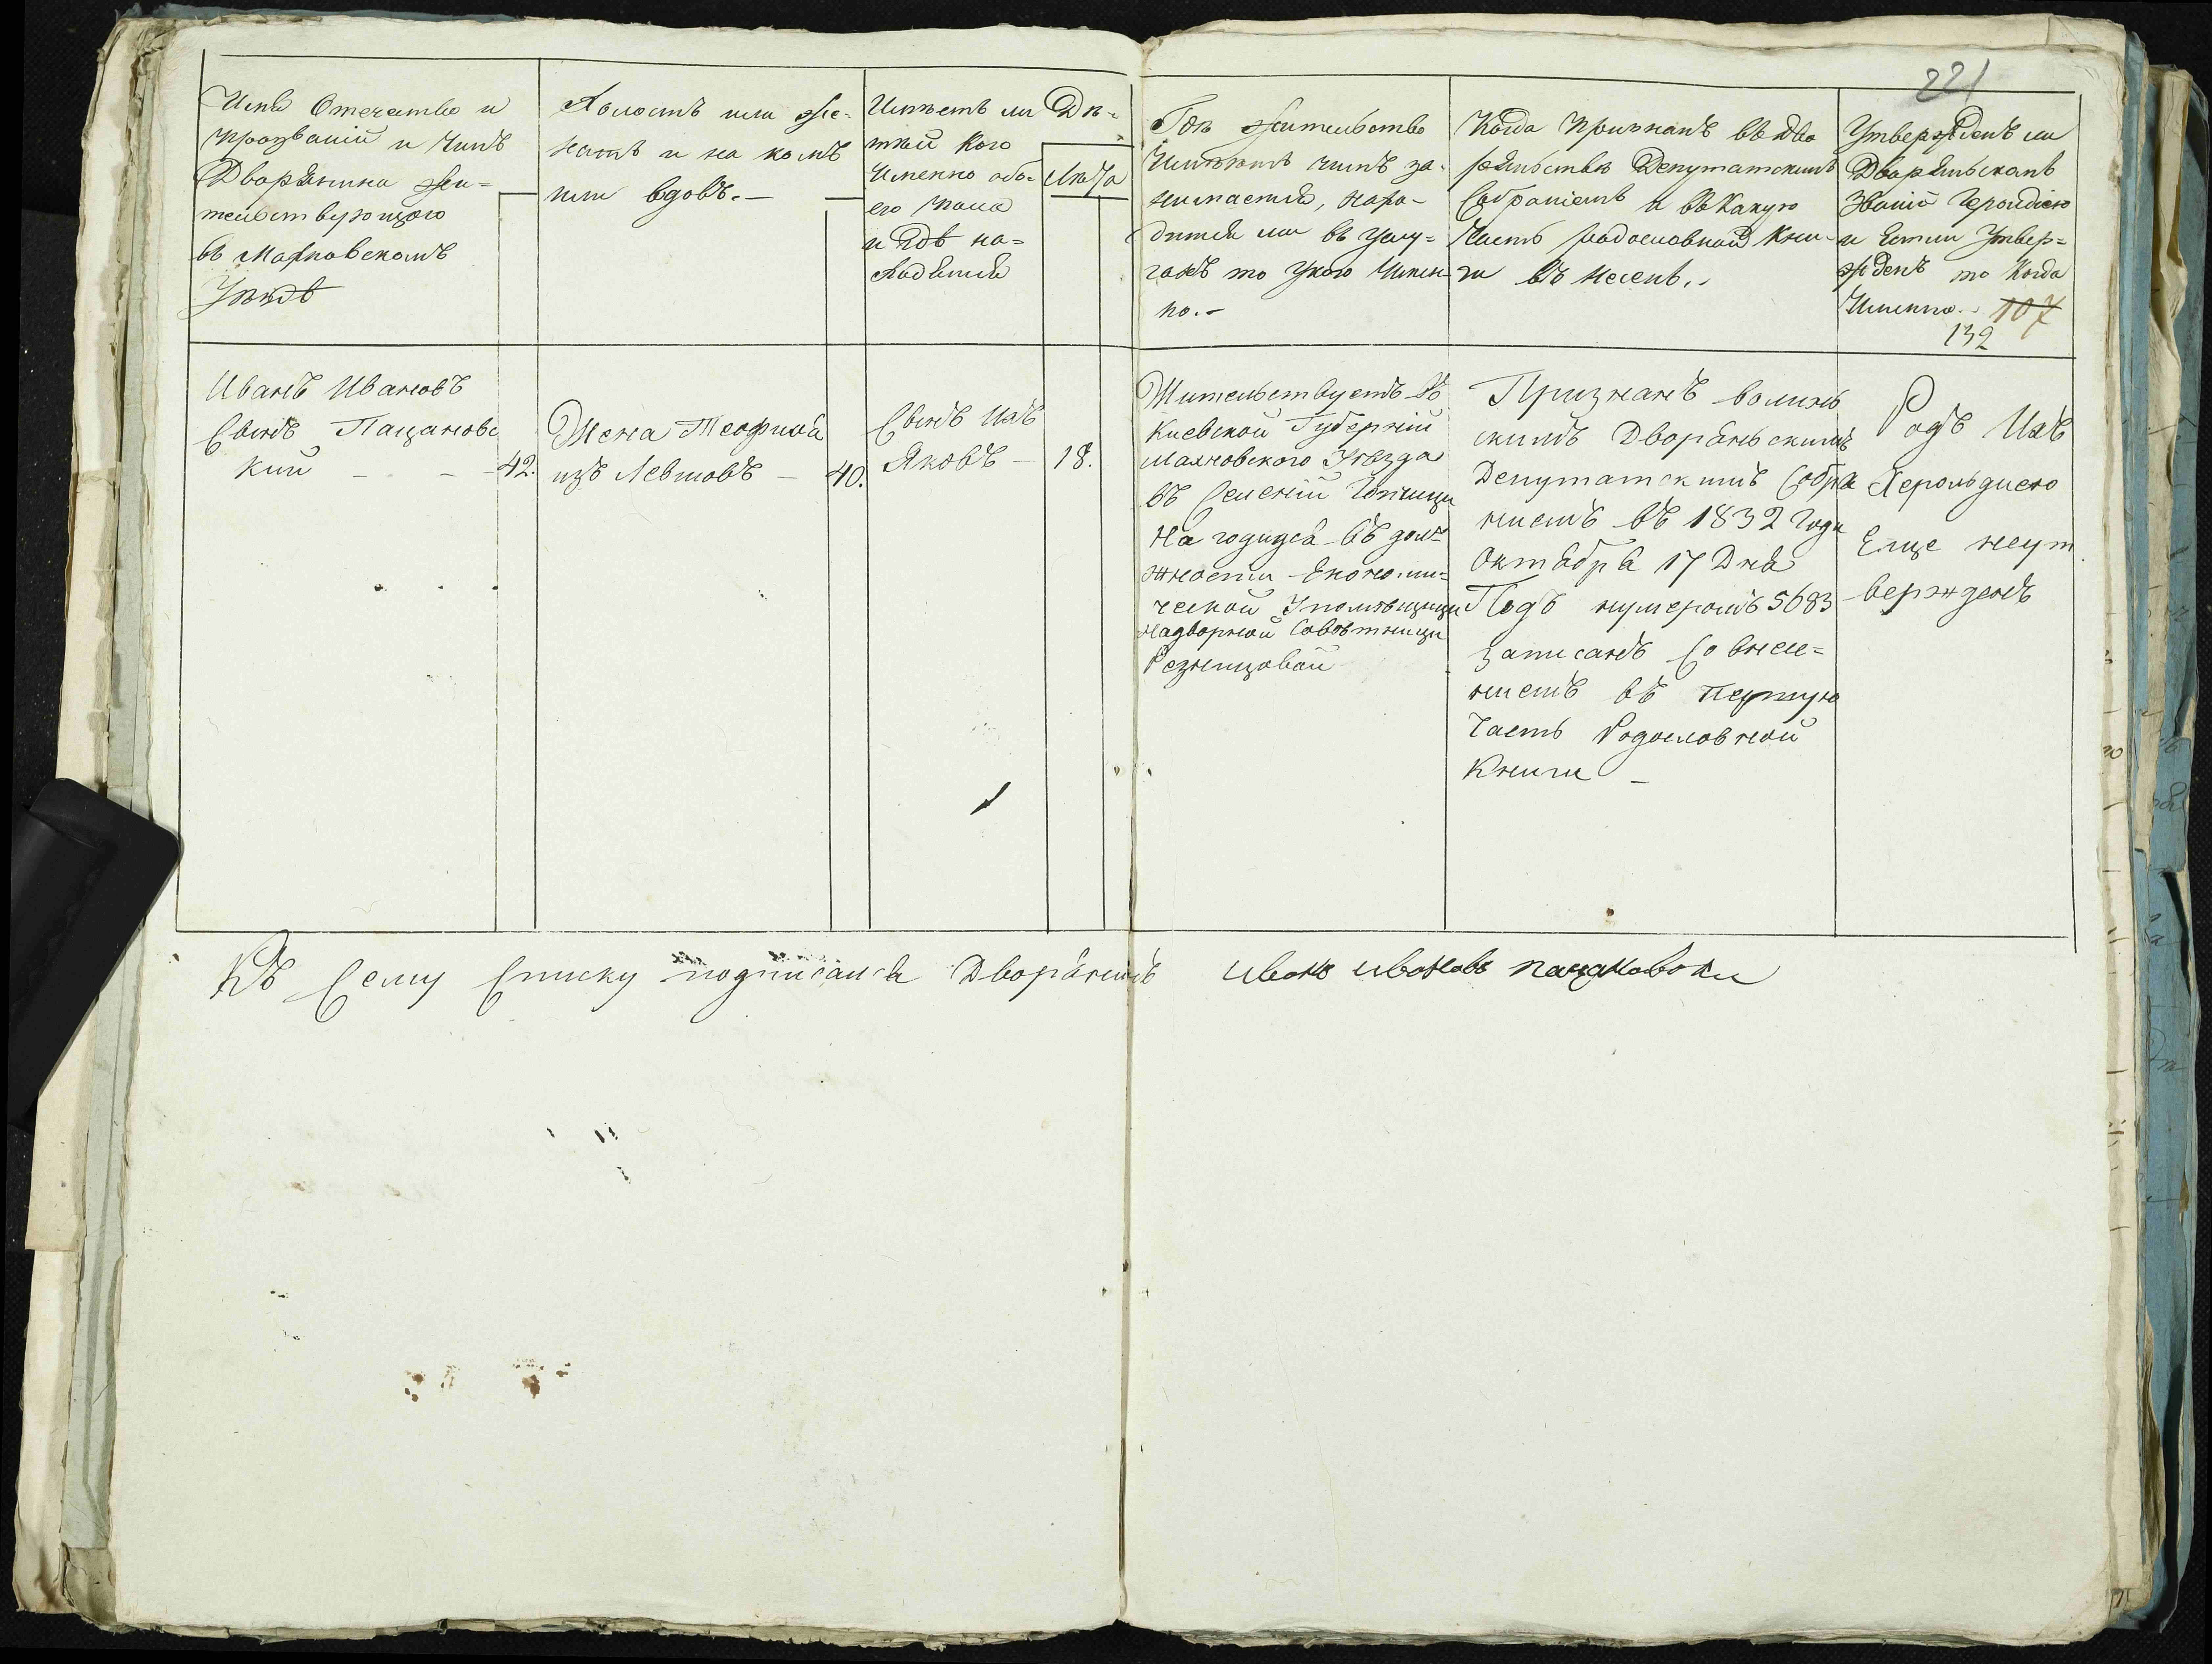 221
Имя Отечество и
прозваній и Чинъ
Дворянина жи=
тельствующого
въ Махновскомъ
Уѣздѣ
Холостъ или же=
натъ и на комъ
или вдовъ.—
Имѣетъ ли Дѣ=
тей Кого
Именно обо=
его пола
и Гдѣ на=
ходятся
Лѣта
Гдѣ жительство
Имѣютъ чимъ за=
нимается, нахо=
дится ли въ услу=
гахъ то у кого Имен=
но.-
Когда признанъ въ Дво
рянствѣ Депутатскимъ
Собраніемъ и въ Какую
Часть родословной Кни=
ги внесенъ.
Утвержденъ ли
Дворянскомъ
Званіи Герольдіею
и Если Утвер=
жденъ то Когда
Именно. 107
132
Иванъ Ивановъ
Сынъ Пацановс
кий - - 42.
Жена Теофила
изъ Левшовъ - 40.
Сынъ Ихъ
Яковъ - 18.
Жительствуетъ въ
Киевской Губерній
Махновского Уѣзда
въ Селеній
Находится въ дол=
жности Економи=
ческой У помѣщицы
Надворной Совѣтницы
Резнецовой
Признанъ волинь
скимъ Дворянскимъ
Депутатскимъ Собра
ниемъ въ 1832 Году
Октября 17 Дня
Подъ нумеромъ 5683
записанъ Со внесе=
ниемъ въ первую
Часть Родословной
Книги -
Родъ Ихъ
Герольдиею
Еще неут
вержденъ
Къ Сему Списку подписался Дворянинъ иванъ ивановъ пацановски